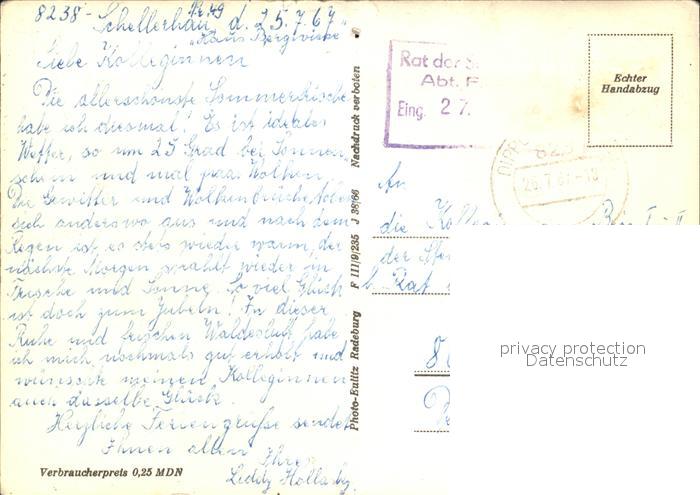 8238 - Schellerhau, d. 25.7.67
Nr. 49
"Haus Bergwiese"
Liebe Kolleginnen
Die allerschönste Sommerfrische
habe ich diesmal! Es ist ideales
Wetter, so um 25 Grad bei Sonnen-
schein und mal paar Wolken.
Die Gewitter und Wolkenbrüche toben
sich anderswo aus und nach dem
Regen ist es stets wieder warm, der
nächste Morgen strahlt wieder in
Frische und Sonne. So viel Glück
ist doch zum Jubeln! In dieser
Ruhe und frischen Waldesluft habe
ich mich nochmals gut erholt und
wünschte meinen Kolleginnen
auch dasselbe Glück.
Herzliche Feriengrüße sendet
Ihnen allen
Ihre
Verbraucherpreis 0,25 MDN
Photo-Eulitz Radeburg F III/9/235 J 38/66 Nachdruck verboten
Rat der S
Abt. F
Eing. 2 7.
Echter
Handabzug
26.7.67-18
An
die
der
b. Rat
privacy protection
Datenschutz